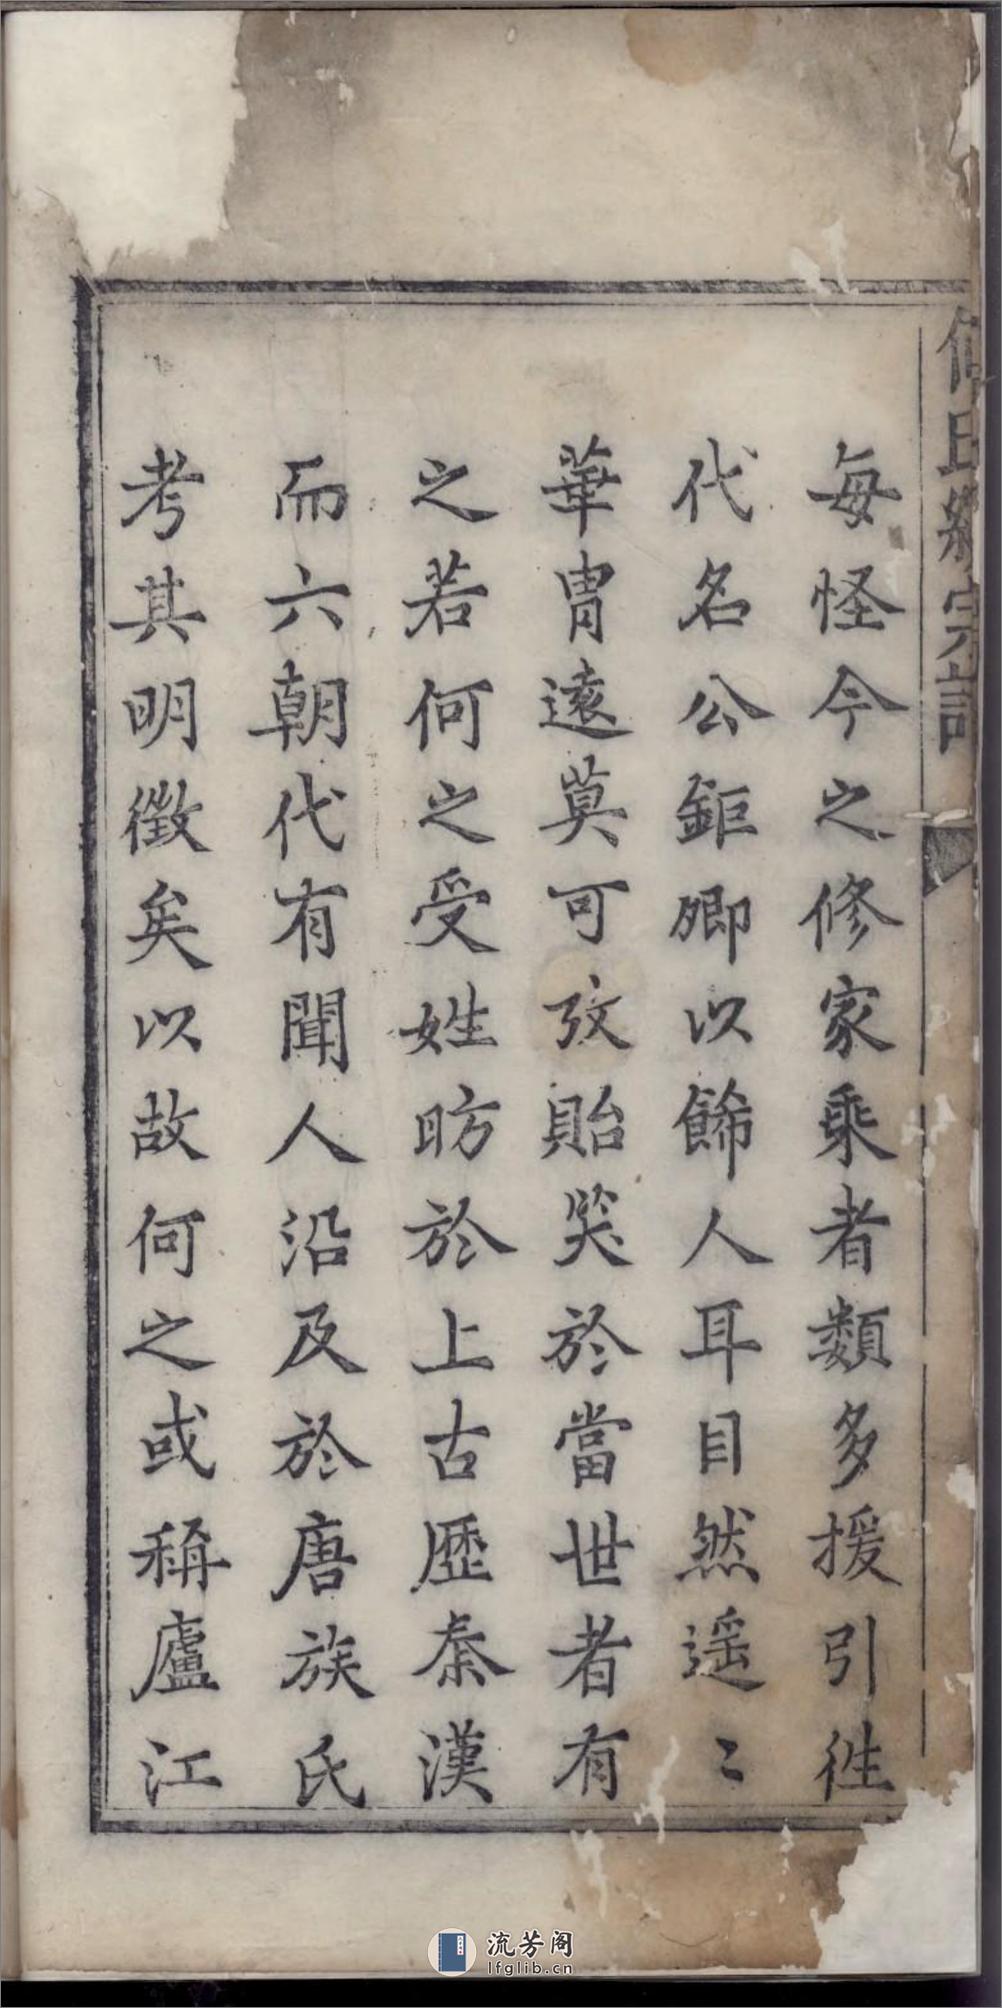 何氏續宗譜
每怪今之修家乘者類多援引徃
代名公鉅卿以餙人耳目然遥〻
華胄遠莫可攷貽笑於當世者有
之若何之受姓昉於上古歷秦漢
而六朝代有聞人沿及於唐族氏
考其明徵矣以故何之或稱廬江
流芳阁
lfglib.cn